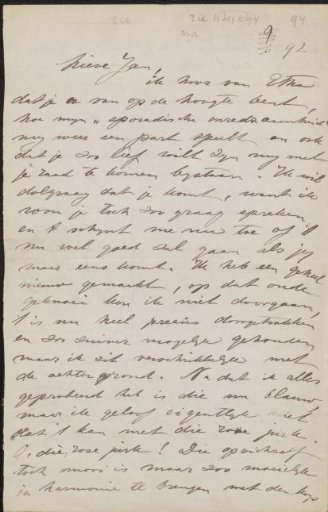 zie zie 11 Sept 94 94
na 9
92
Lieve Jan,
ik hoor van Etha
dat je er van op de hoogte bent,
hoe mijn "sporadische
mij weer een part speelt en ook
dat je zoo lief wilt zijn mij met
je raad te komen bijstaan. Ik wil
dolgraag dat je komt, want ik
vou je toch zoo graag spreken
en 't schynt me nu toe of 't
nu wel goed zal gaan als jij
maar eens komt. Ik heb een geheel
nieuw gemaakt, op dat oude
kon ik niet doorgaan,
't is nu heel precies doorgetrokken
en zoo zuiver mogelijk gehouden
maar ik zit verschrikkelijk met
de achtergrond. Na dat ik alles
geprobeerd heb is die nu blauw
maar ik geloof eigentlijk niet
dat 't kan met die rose jurk.
O, die rose jurk! Die op zichzelf
toch mooi is maar zoo moeielijk
in harmonie te brengen met den kop